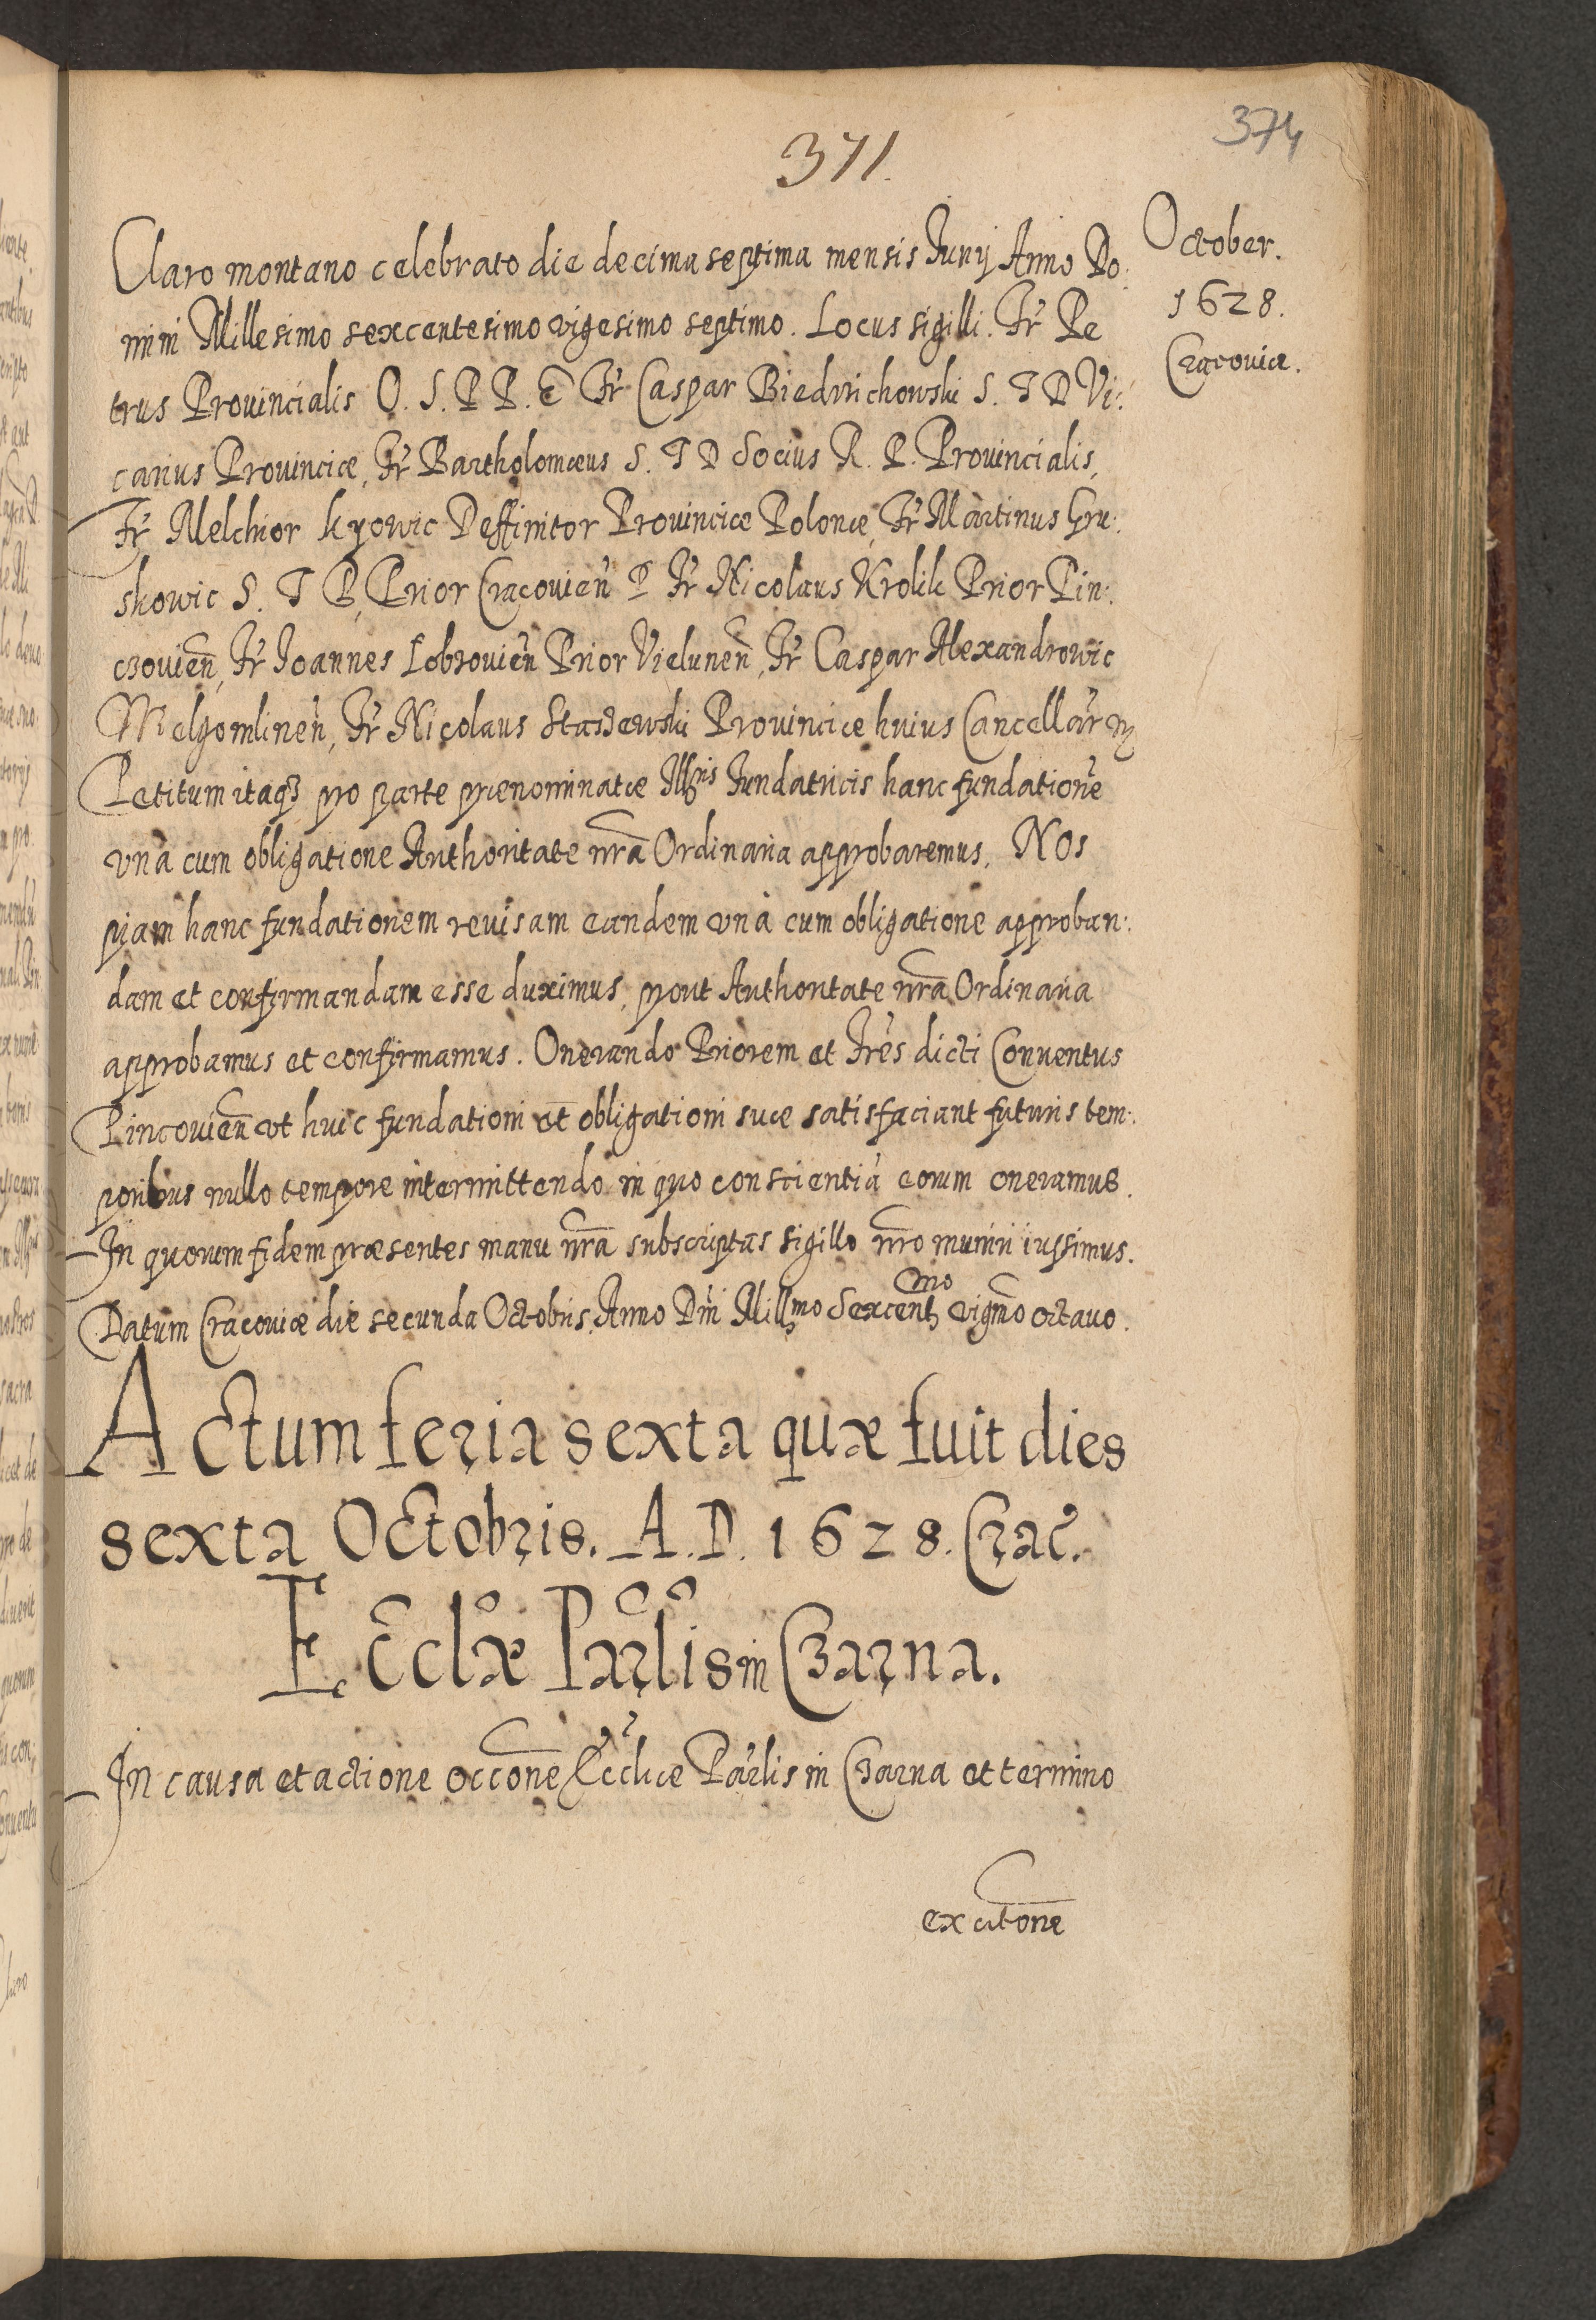 371.
374
October.
1628.
Cracoviæ.
Claro montano celebrato die decima septima mensis Junij Anno Do:
mini Millesimo sexcentesimo vigesimo septimo. Locus sigilli. Fr̃ Pe
trus Prouincialis O. S. P P. E Fr̃ Caspar Biedrichowski S. T D Vi:
carius Prouinciæ, Fr̃ Bartholomæus S. T D Socius R. P. Prouincialis,
Fr̃ Melchior Kyowic Deffinitor Prouinciæ Polonæ, Fr̃ Martinus Gru:
skowic S. T B, Prior Cracouieñ P Fr̃ Nicolaus Krolik Prior Pin:
czouieñ, Fr̃ Joannes Lobzouieñ Prior Vieluneñ, Fr̃ Caspar Alexandrowic
Melgomlineñ, Fr̃ Nicolaus Staszewski Prouinciæ huius Cancellar̃
Petitum itaq₃ pro parte prænominatæ Illris Fundatricis hanc fundationẽ
vnà cum obligatione Authoritate nr̃a Ordinaria approbaremus. Nos
piam hanc fundationem reuisam eandem vnà cum obligatione approban:
dam et confirmandam esse duximus, prout Authoritate nr̃a Ordinaria
approbamus et confirmamus. Onerando Priorem et Fr̃es dicti Conuentus
Pincouieñ vt huic fundationi et obligationi suæ satisfaciant futuris tem:
poribus nullo tempore intermittendo in quo conscientiã eorum oneramus.
In quorum fidem præsentes manu nr̃a subscriptas sigillo nr̃o muniri iussimus.
Datum Cracouiæ die secunda Octobris, Anno Dñi Millmo Sexcentmo vigm̃o octauo.
Actum feria sexta quæ fuit dies
sexta Octobris. A. D. 1628. Crac̃.
Ecclæ Par̃lis in Czarna.
In causa et actione occõne Ecclæ Par̃lis in Czarna et termino
ex citõne